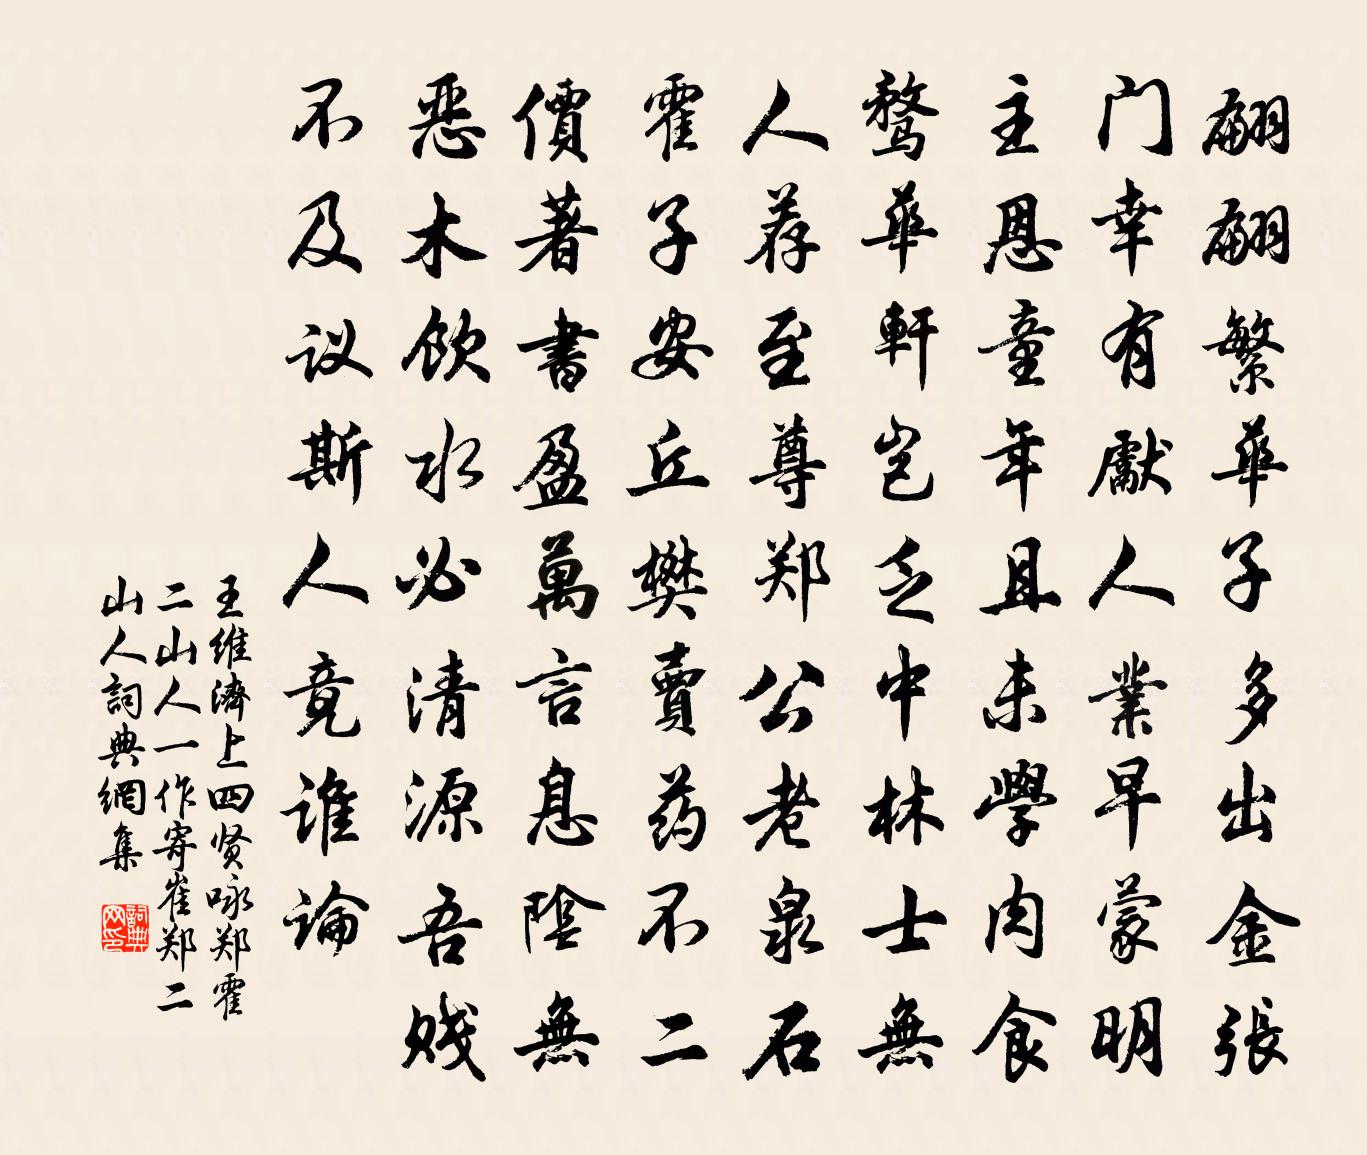 翩翩繁華子多出金張
门幸有獻人業早蒙明
主恩童年且未學肉食
鹜華軒岂乏中林士無
人荐至尊郑公老泉石
霍子安丘樊賣药不二
價著書盈萬言息陰無
惡木飲水必清源吾贱
不及议斯人竟谁論
王维濟上四贤咏郑霍
二山人一作寄崔郑二
山人詞典網集
詞典
网印